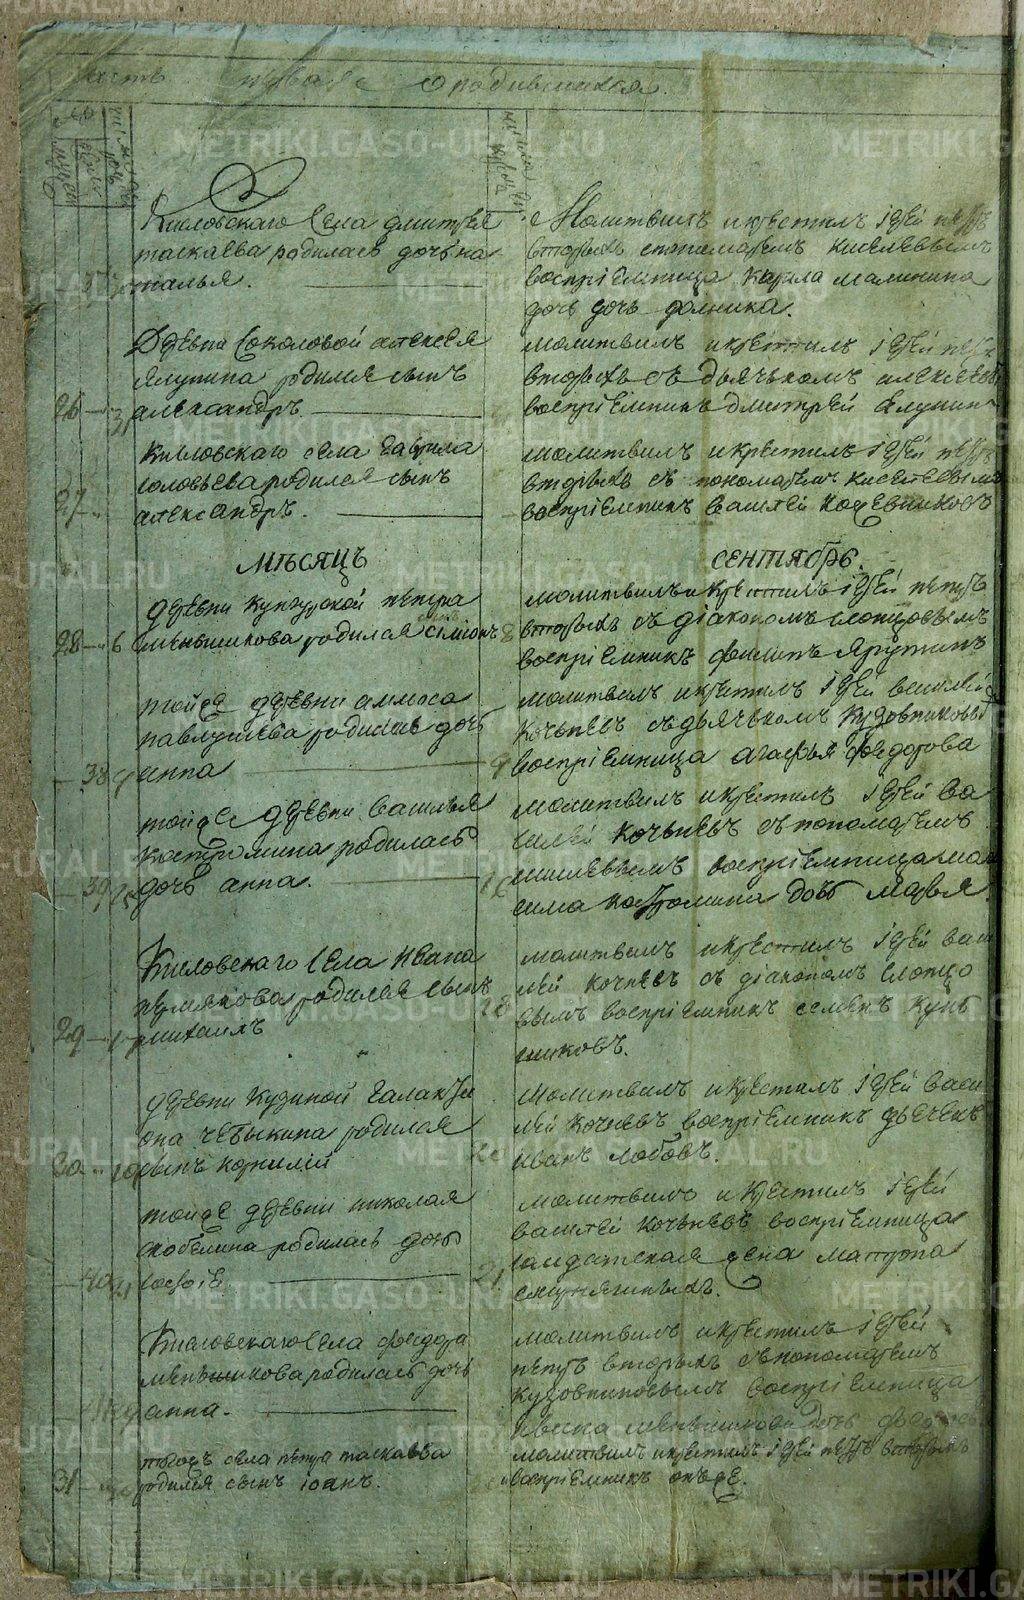 часть первая о родившихся
Кисловскаго села дмитрея
таскаева родилась дочь на
талья.
Молитвилъ и крестилъ иерей петръ
вторыхъ с пономаремъ киселевымъ
воспріемница карпа малинина
дочь
деревни соколовой алексея
ялунина родился сынъ
26 31 александръ
молитвилъ и крестилъ іерей петръ
вторыхъ съ дьячькомъ
воспріемникъ дмитрей ялунинъ
кисловскаго села гаврила
соловьева родился сынъ
27 александръ.
молитвилъ и крестилъ іерей петръ
вторыхъ съ пономаремъ киселевымъ
воспріемникъ василей кожевниковъ
мѣсяцъ сентябрь.
деревни кунгурской петра
28 6 меньшикова родился сынъ симіонъ 8
молитвилъ и крестилъ іерей петръ
вторыхъ съ діакономъ слопцовымъ
воспріемникъ филипъ ярутинъ
той же деревни аммоса
павлушева родилась дочь
38 9 анна 9
молитвилъ и крестилъ іерей василей
кочьневъ съ дьячькомъ кузовниковым
воспріемница агафья федорова
той же деревни василья
костромина родилась
39 15 дочь анна. 16
молитвилъ и крестилъ іерей ва
силей кочьневъ съ пономаремъ
воспріемница мак
сима костромина дочь марья.
Кисловскаго села ивана
пермякова родился сынъ
29 17 михаилъ 18
молитвилъ и крестилъ іерей васи
лей кочневъ съ діакономъ слопцо
вымъ воспріемникъ семенъ
деревни кузиной галакти
она чебыкина родился
30 19 сынъ корнилій 20
молитвилъ и крестилъ іерей васи
лей кочневъ воспріемникъ дьяченъ
иванъ лобовъ.
той же деревни николая
скобелина родилась дочь
40 21 софія 21
молитвилъ и крестилъ іерей
василей кочьневъ воспріемница
солдатская жена матрона
Кисловскаго села федора
меньшикова родилась дочь
41 анна.
молитвилъ и крестилъ іерей
петръ вторыхъ съ пономаремъ
кузовниковымъ воспріемница
ивана меньшикова дочь
тогожъ села петра таскаева
31 родился сынъ іоанъ.
молитвилъ и крестилъ іерей петръ вторыхъ
воспріемникъ онъ же.
METRIKI.GASO-URAL.RU